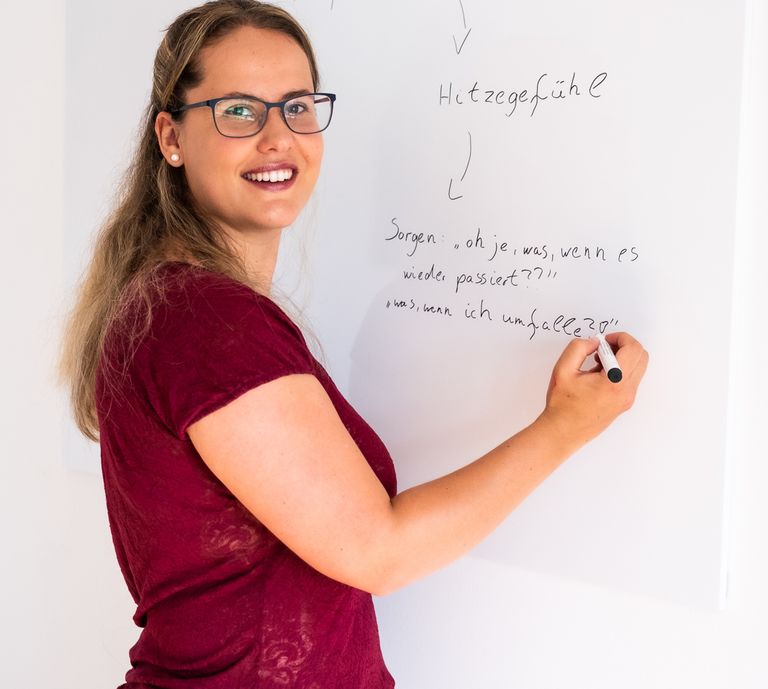 Hitzegefühl
Sorgen: „oh je, was, wenn es
wieder passiert??"
„was, wenn ich umfalle??"